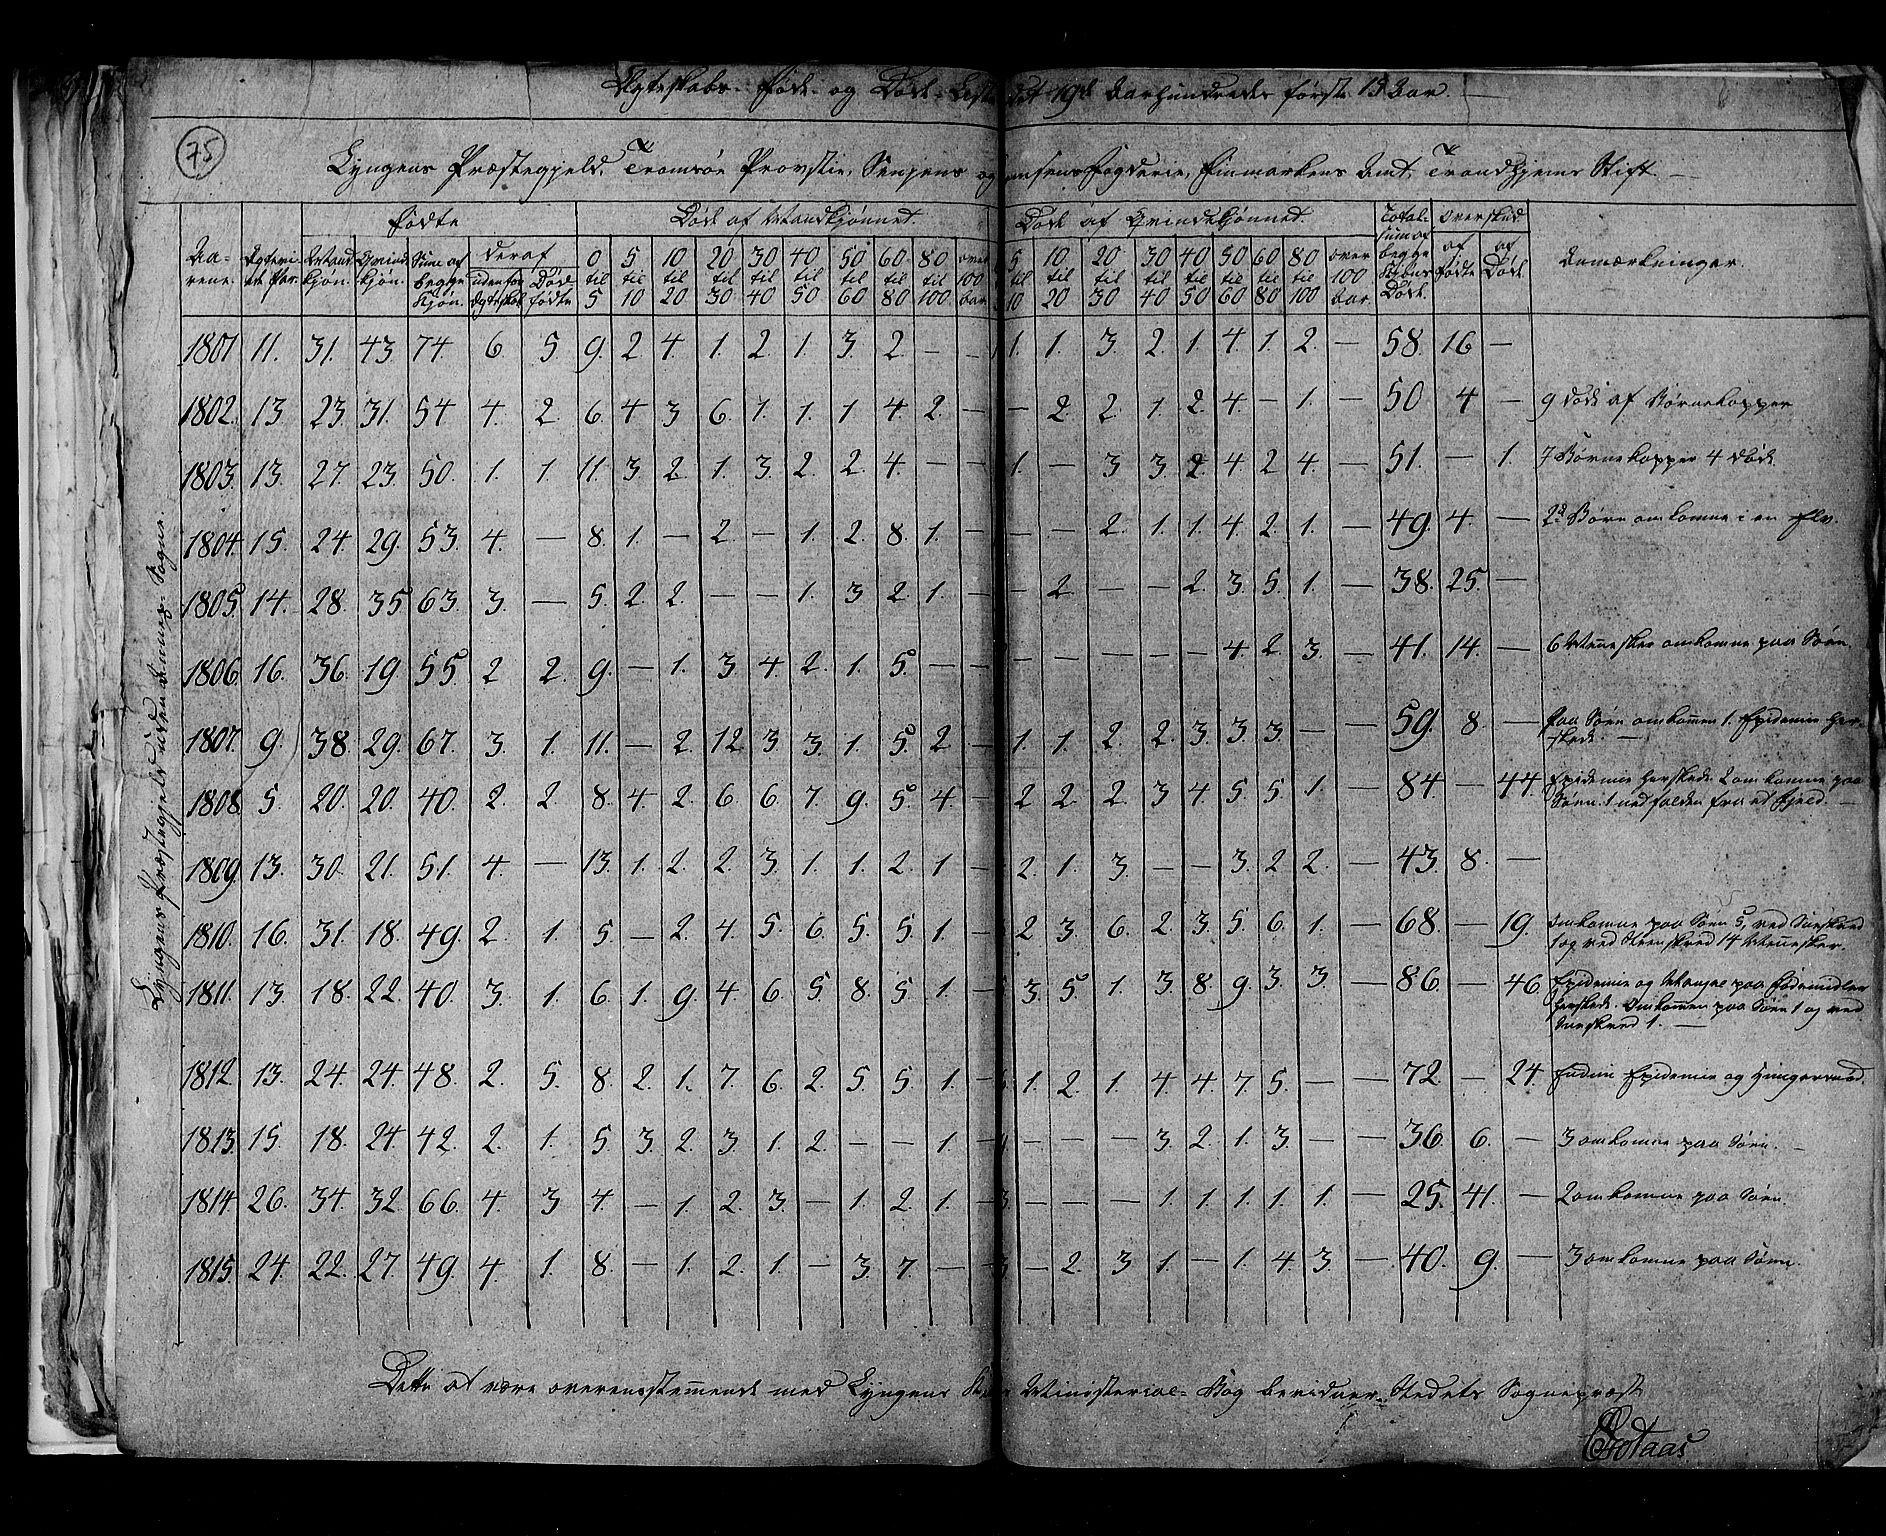 Ægteskabs- Føde- og Døde-Liste det 19de Aarhundredes første 15 Aar.
75
Lyngens Præstegjeld, Tromsøe Provstie, Senjens og Tromsens Fogderie, Finmarkens Amt, Trondhjems Stift.
Fødte Døde af Mandkjønnet Døde af Qvindekjønnet Total- Overskud
Aa- Ægtevi- Mand- Qvind- Sum af deraf 0 5 10 20 30 40 50 60 80 over 5 10 20 30 40 50 60 80 over sum af af af Anmærkninger.
rene. ede Par. kjøn. kjøn. begge uden for Død- til til til til til til til til til 100 til til til til til til til til 100 begge Fødte Døde
Kjøn. Ægteskab fødte 5 10 20 30 40 50 60 80 100 Aar 10 20 30 40 50 60 80 100 Aar. Kjøns Døde.
Lyngens Præstegjeld uden Annex-Sogne.
1801 11. 31. 43. 74. 6. 5 9. 2 4. 1. 2. 1. 3. 2. — — 1. 1. 3. 2. 1 4. 1. 2. — 58. 16 —
1802. 13. 23. 31. 54 4. 2. 6. 4. 3 6. 1. 1. 1 4. 2. — — 2 2. 1. 2 4. — 1. — 50 4 — 9 døde af Børnekopper
1803. 13. 27. 23. 50. 1. 1. 11. 3. 2. 1. 3. 2. 2. 4. — — 1. — 3 3. 2 4 2 4. — 51. — 1. 7 Børnekopper 4 døde.
1804. 15. 24. 29. 53. 4. — 8. 1. — 2. — 1. 2. 8. 1. — — — 2 1. 1. 4. 2. 1. — 49. 4. — 2de Børn omkomne i en Elv.
1805. 14. 28. 35 63. 3. — 5. 2. 2. — — 1. 3 2. 1. — 2. — — 2. 3. 5. 1. — 38. 25. —
1806. 16. 36. 19. 55. 2 2. 9. — 1. 3 4. 2. 1. 5. — — — — — — — 4. 2. 3. — 41. 14. — 6 Mennesker omkomne paa Søen.
1807. 9. 38 29. 67. 3. 1. 11. — 2. 12. 3 3. 1. 5. 2 — 1. 1. 2. 2. 3. 3. 3. — — 59. 8. — Paa Søen omkommen 1. Epidemie her-
skede. —
1808. 5 20. 20. 40. 2 2 8. 4. 2. 6 6. 7. 9. 5. 4 — 2 2. 2 3 4. 5 5. 1. — 84. — 44. Epidemie herskede 2 omkomne paa
Søen. 1 nedfalden fra et Fjeld. —
1809. 13. 30. 21. 51. 4. — 13. 1. 2. 2. 3. 1. 1. 2. 1 — 2. 1. 3. — — 3. 2 2. — 43. 8. —
1810. 16. 31. 18. 49. 2. 1. 5 — 2. 4. 5. 6. 5. 5. 1. — 2 3. 6. 2. 3. 5. 6. 1. — 68. — 19. Omkomne paa Søen 5, ved Sneskred
1 og ved Steenskred 14 Mennesker.
1811. 13. 18. 22. 40. 3. 1. 6. 1. 9. 4. 6. 5. 8. 5. 1. — 3. 5. 1. 3 8. 9. 3 3. — 86. — 46. Epidemie og Mangel paa Fødemidler
herskede. Omkommen paa Søen 1 og ved
Sneskred 1. —
1812. 13. 24. 24. 48. 2. 5. 8. 2. 1. 7. 6. 2. 5. 5. 1. — 1. 2. 1. 4. 4. 7 5. — — 72. — 24. Endnu Epidemie og Hungersnød.
1813. 15. 18. 24. 42. 2. 1. 5 3. 2. 3. 1. 2. — — 1. — — — — 3. 2. 1. 3. — — 36. 6. — 3 omkomne paa Søen. —
1814. 26. 34. 32. 66. 4. 3 4. — 1. 2. 3. — 1. 2. 1. — 3 — — — 1. 1. 1. 1. 1. — 25. 41. — 2 omkomne paa Søen.
1815. 24. 22. 27. 49. 4. 1. 8. — 1. 2. 1. — 3. 7. — — — 2. 3 1. — 1. 4 3 — 40. 9. — 3 omkomne paa Søen.
Dette at være overensstemmende med Lyngens Ministerial-Bog bevidner Stedets Sognepræst